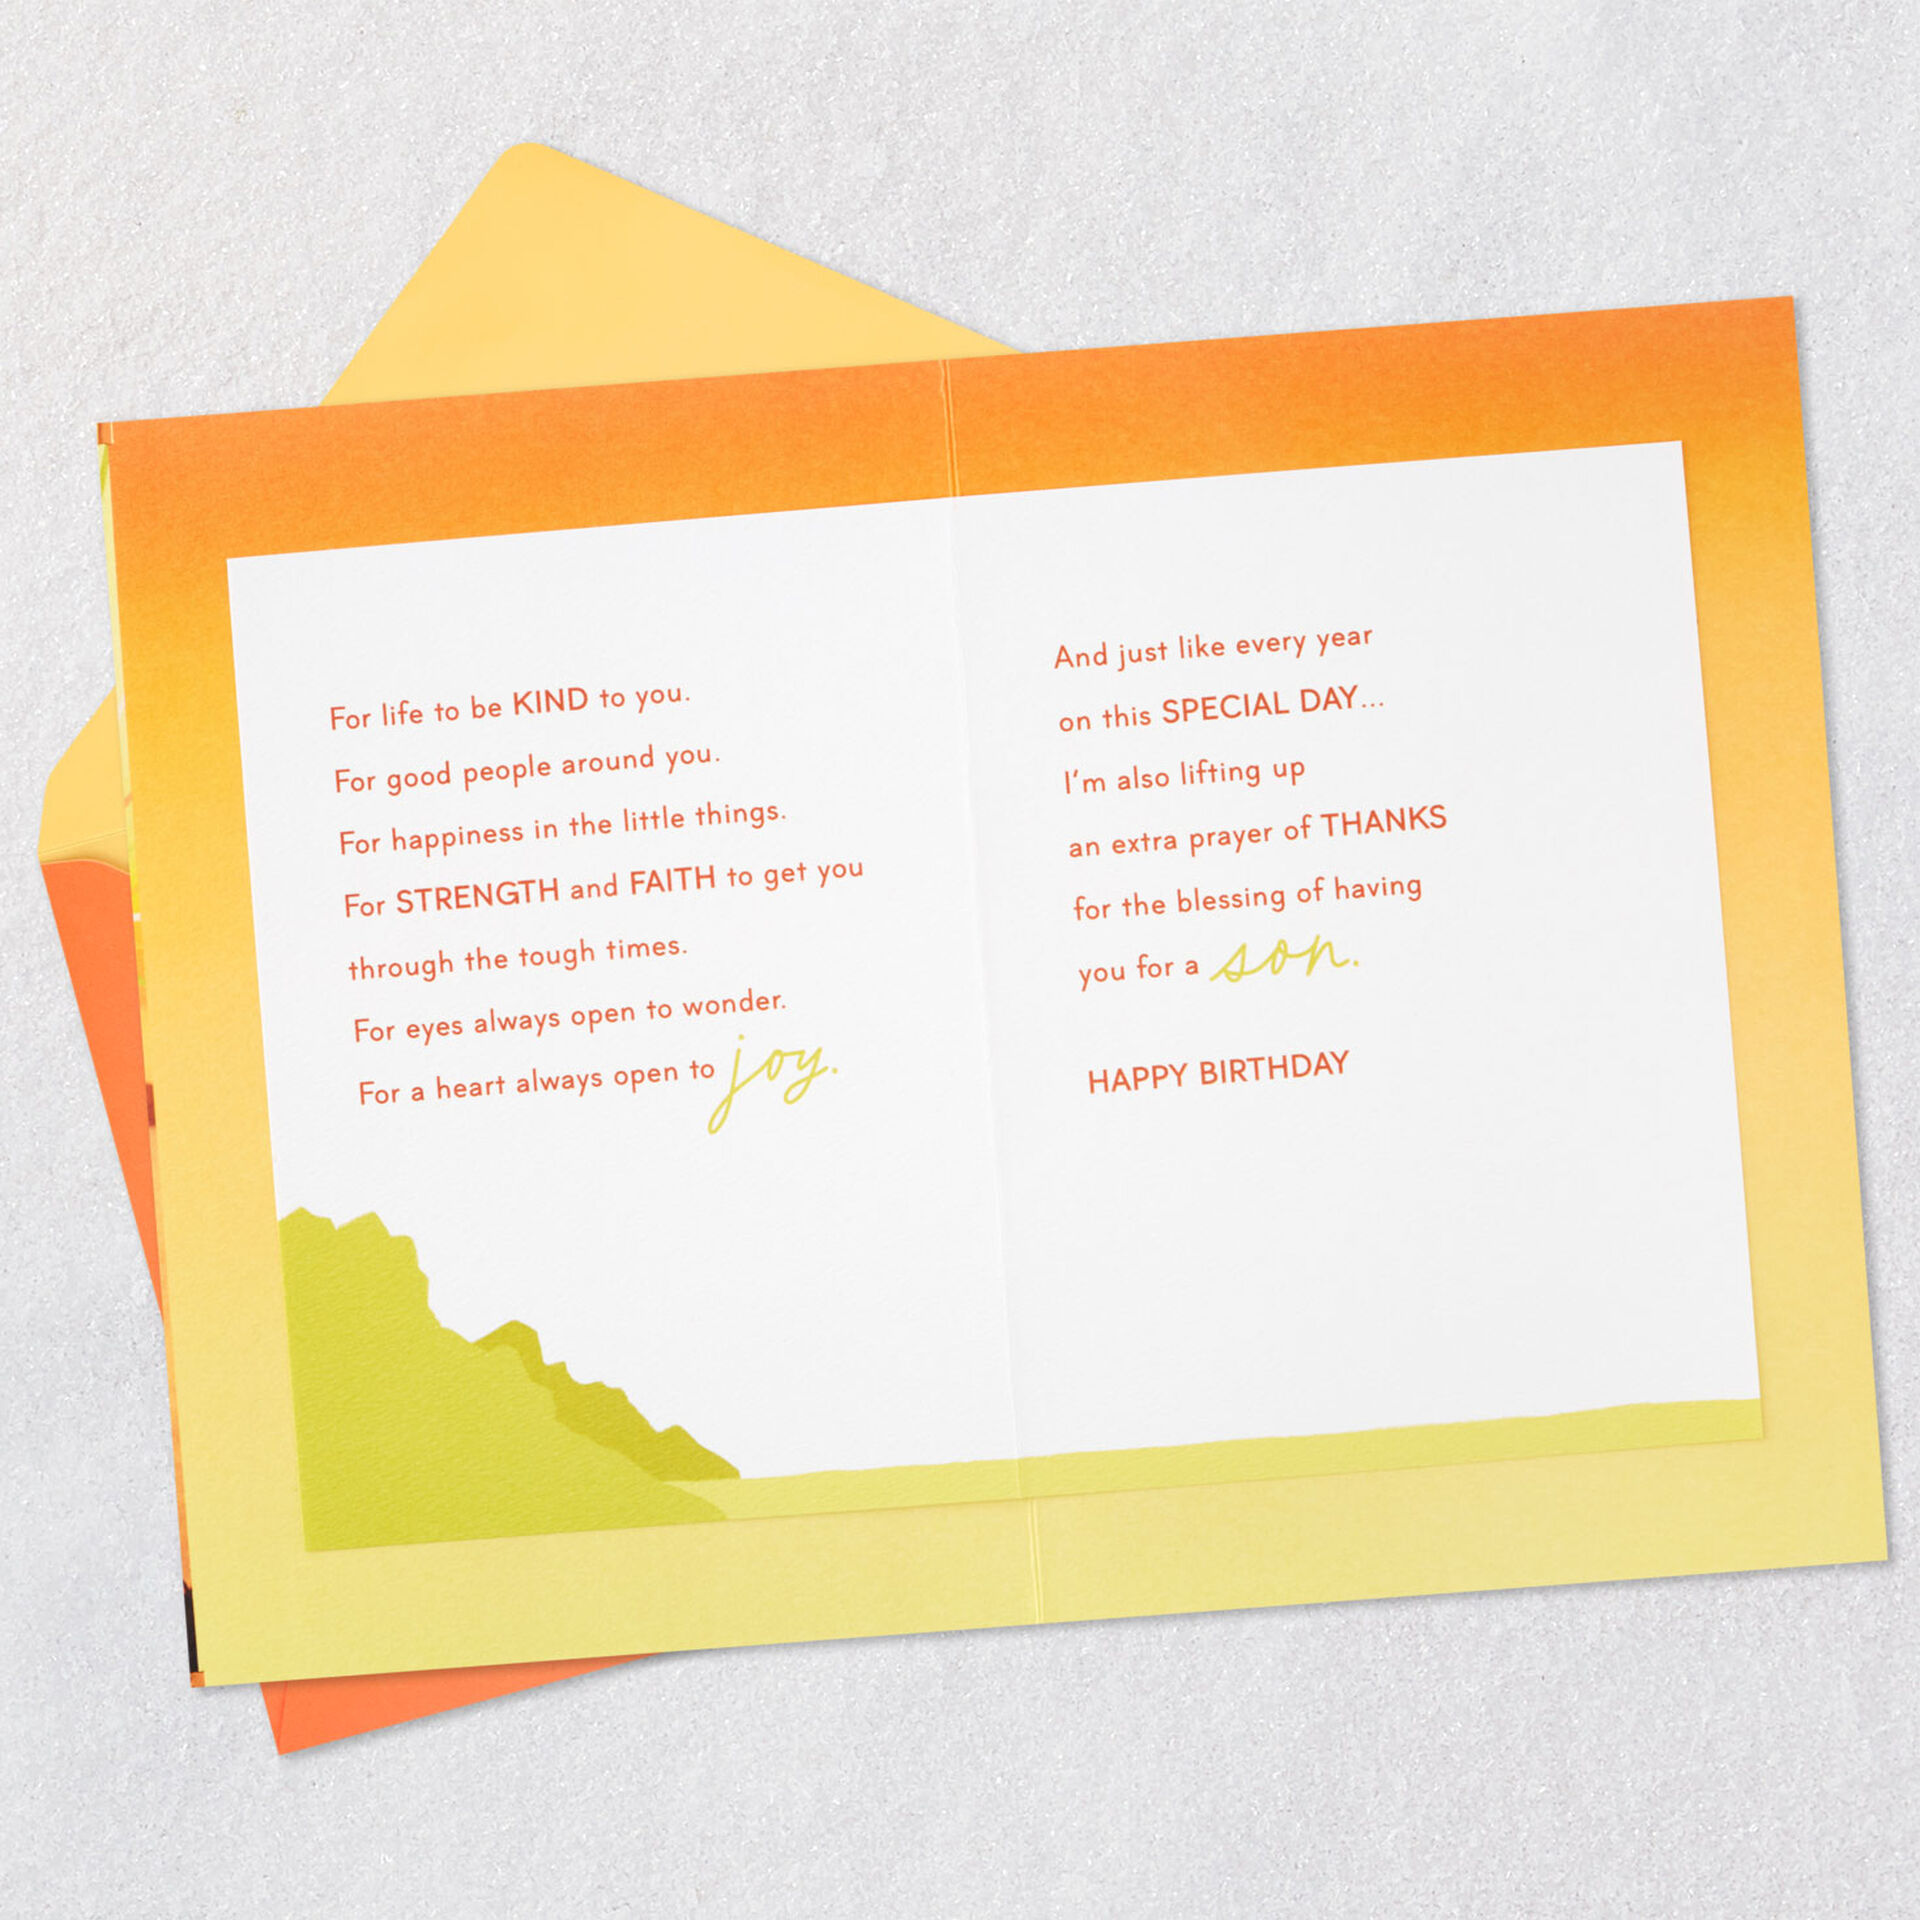 For life to be KIND to you.
For good people around you.
For happiness in the little things.
For STRENGTH and FAITH to get you
through the tough times.
For eyes always open to wonder.
For a heart always open to joy.
And just like every year
on this SPECIAL DAY...
I'm also lifting up
an extra prayer of THANKS
for the blessing of having
you for a son.
HAPPY BIRTHDAY